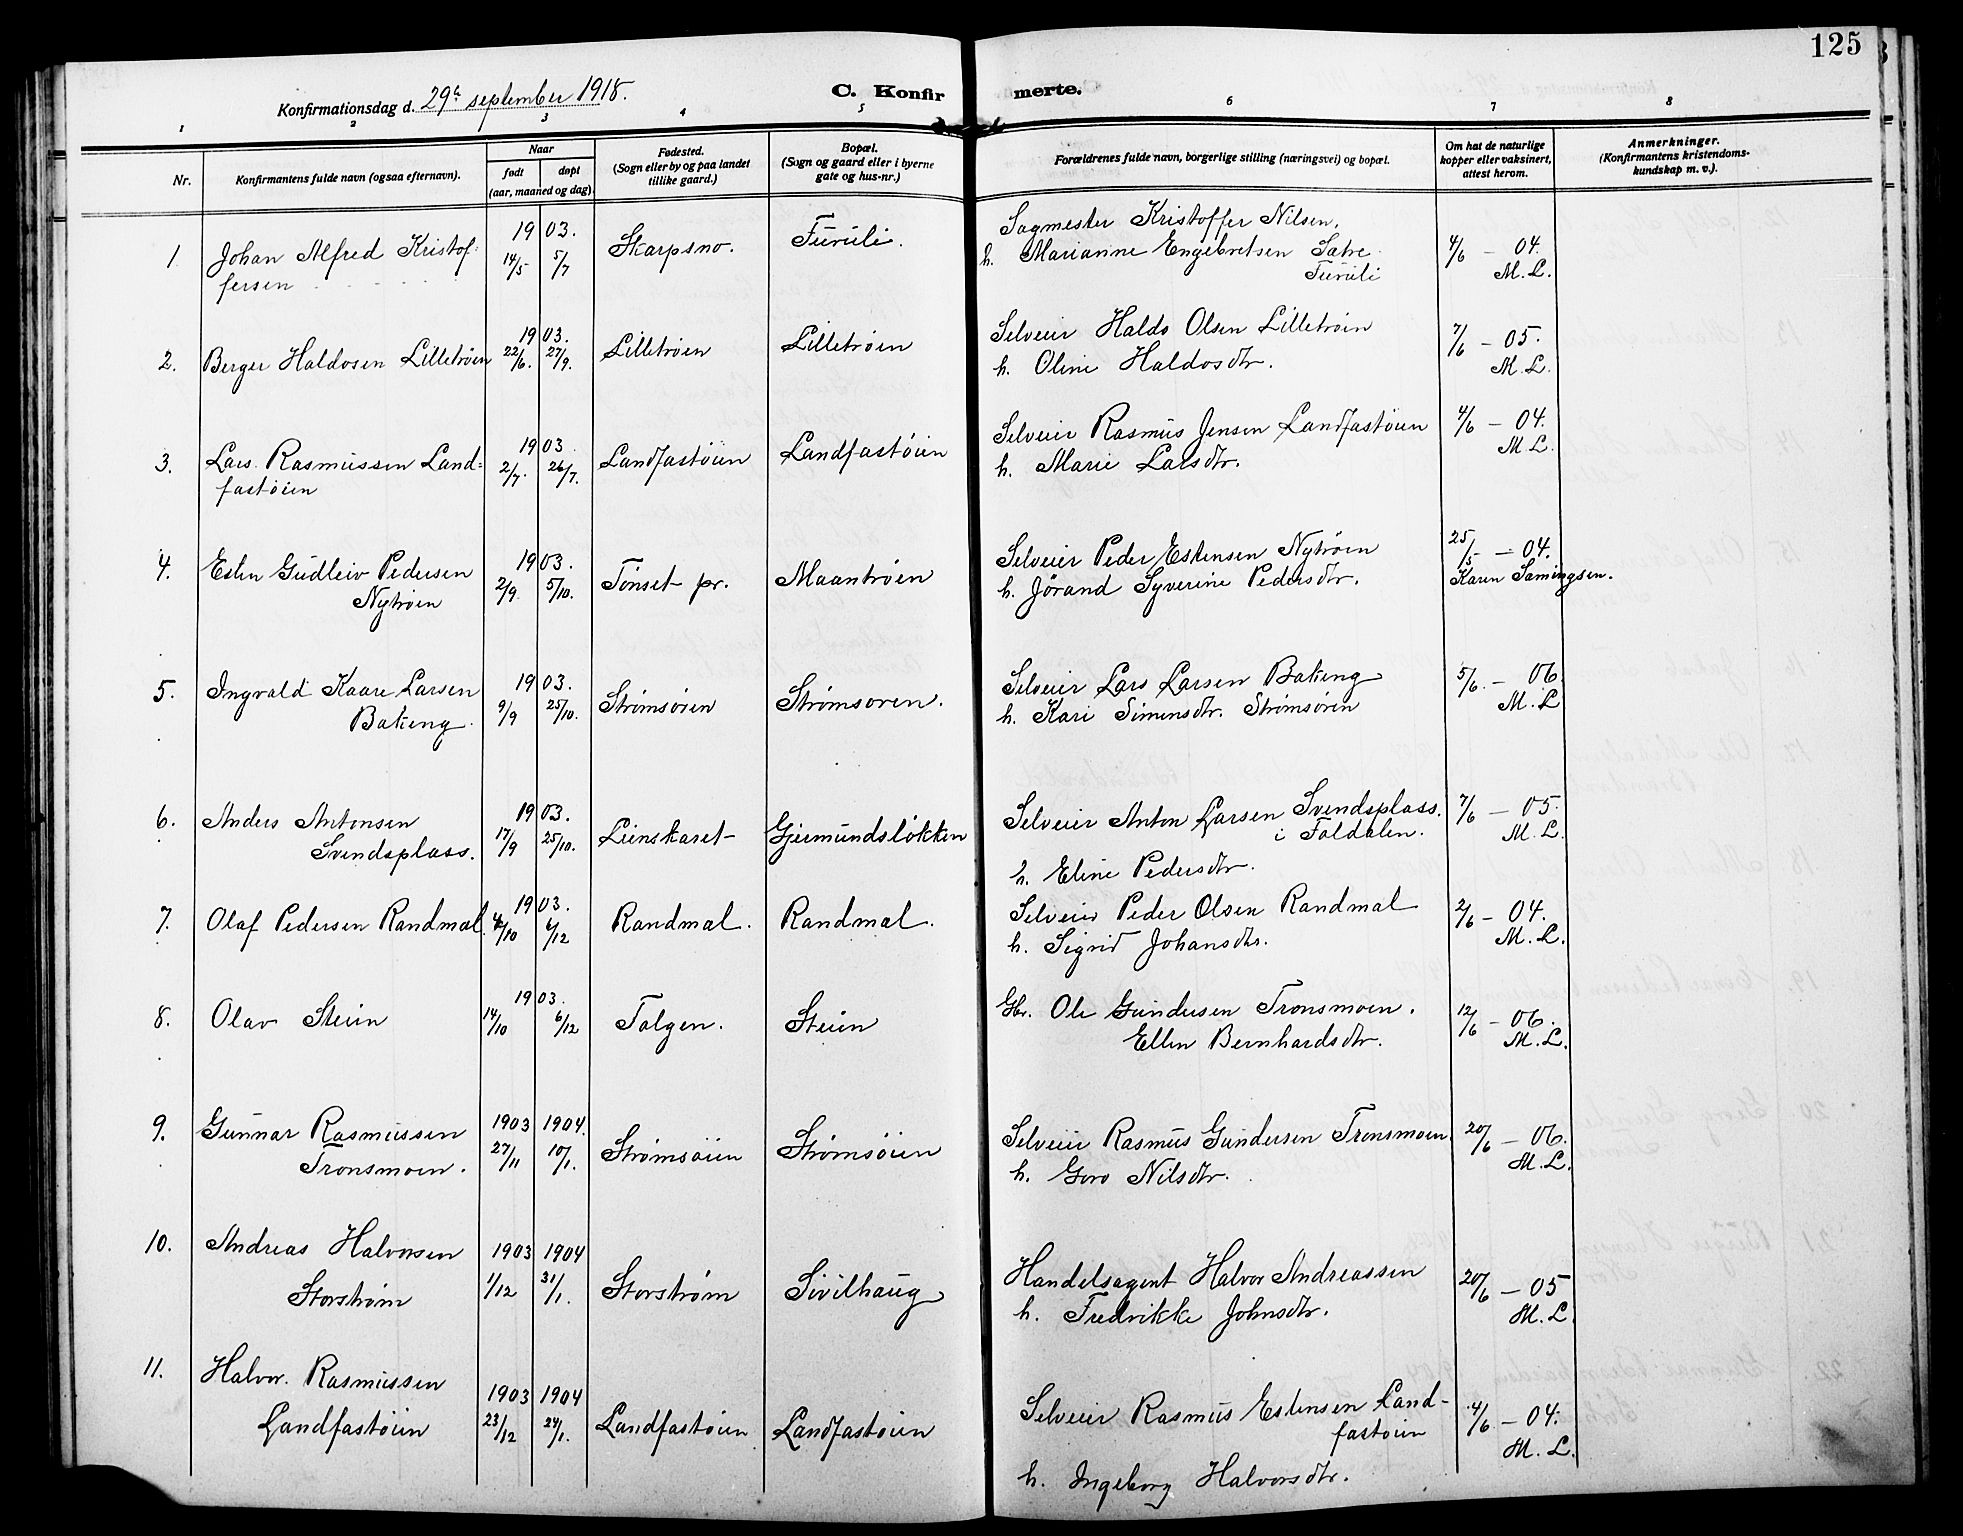 125
Konfirmationsdag d. 29de september 1918.
C. Konfirmerte.
1 2 3 4 5 6 7 8
Nr.
Konfirmantens fulde navn (ogsaa efternavn).
Naar
født
døpt
(aar, maaned og dag)
Fødested.
(Sogn eller by og paa landet
tillike gaard.)
Bopæl.
(Sogn og gaard eller i byerne
gate og hus-nr.)
Forældrenes fulde navn, borgerlige stilling (næringsvei) og bopæl.
Om hat de naturlige
kopper eller vaksinert,
attest herom.
Anmerkninger.
(Konfirmantens kristendoms-
kundskap m. v.).
1 Johan Alfred Kristof-
fersen
1903.
14/5 5/7
Skarpsno.
Furuli.
Sagmester Kristoffer Nilsen.
h. Marianne Engebretsen Sætre
Furuli
4/6 – 04.
M. L.
2. Berger Haldosen Lilletrøen
1903.
22/6. 27/9.
Lilletrøen
Lilletrøen
Selveier Haldo Olsen Lilletrøen
h. Oline Haldosdtr.
7/6 – 05.
M. L.
3. Lars Rasmussen Land-
fastøien
1903
2/7. 26/7.
Landfastøien
Landfastøien
Selveier Rasmus Jensen Landfastøien
h. Marie Larsdtr.
4/6 – 04.
M. L.
4. Esten Gudleiv Pedersen
Nytrøen
1903.
2/9. 5/10.
Tønset pr.
Maantrøen
Selveier Peder Estensen Nytrøen
h. Jørand Syverine Pedersdtr.
25/5 – 04.
Karen Samingsen.
5. Ingvald Kaare Larsen
Bakeng
1903.
9/9 25/10.
Strømsøien
Strømsøien.
Selveier Lars Larsen Bakeng
h. Kari Simensdtr. Strømsøien
5/6. – 06
M. L
6. Anders Antonsen
Svendsplass.
1903.
17/9 25/10.
Lienskaret
Gjermundsløkken
Selveier Anton Larsen Svendsplass.
i Foldalen.
h. Eline Pedersdtr.
7/6 – 05.
M. L.
7. Olaf Pedersen Randmæl.
1903.
4/10 6/12
Randmæl.
Randmæl.
Selveier Peder Olsen Randmæl
h. Sigrid Johansdtr.
2/6 – 04.
M. L.
8. Olav Steien
1903.
14/10 6/12
Tolgen.
Steien
Gbr. Ole Gundersen Tronsmoen.
Ellen Bernhardsdtr.
12/6 – 06.
M. L.
9. Gunnar Rasmussen
Tronsmoen.
1903 1904.
27/11 10/1.
Strømsøien
Strømsøien
Selveier Rasmus Gundersen Tronsmoen.
h. Goro Nilsdtr.
20/6 – 06.
M. L.
10. Andreas Halvorsen
Storstrøm
1903 1904
1/12 31/1.
Storstrøm
Sivilhaug
Handelsagent Halvor Andreassen
h. Fredrikke Johnsdtr.
20/6 – 05
M. L.
11. Halvor Rasmussen
Landfastøien
1903 1904
23/12 24/1.
Landfastøien
Landfastøien
Selveier Rasmus Estensen Land-
fastøien
h. Ingeborg Halvorsdtr.
4/6 – 04.
M. L.